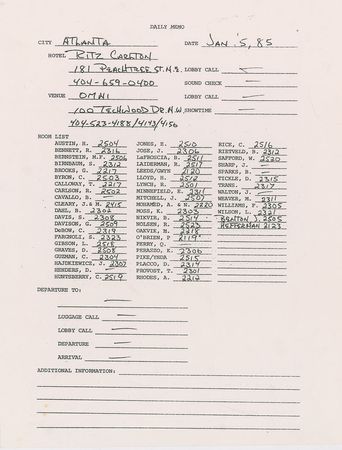 DAILY MEMO
CITY ATLANTA DATE JAN. 5, 85
HOTEL RITZ CARLTON
181 PEACHTREE ST. N.E. LOBBY CALL —
404-659-0400 SOUND CHECK —
VENUE OMNI LOBBY CALL —
100 TECHWOOD DR. N.W. SHOWTIME —
404-523-4188/4143/4156
ROOM LIST
AUSTIN, H. 2504 JONES, E. 2510 RICE, C. 2516
BENNETT, R. 2316 JOSE, J. 2306 RIETVELD, B. 2312
BERNSTEIN, M.F. 2506 LaFROSCIA, B. 2511 SAFFORD, W. 2520
BIRNBAUM, S. 2312 LAIDERMAN, R. 2517 SHARP, J. —
BROOKS, G. 2217 LEEDS/GWYN 2120 SPARKS, B. —
BYRON, C. 2503 LLOYD, H. 2512 TICKLE, D. 2315
CALLOWAY, T. 2217 LYNCH, R. 2501 TRANS. 2317
CARLSON, R. 2502 MINNIFIELD, E. 2311 WALTON, J. —
CAVALLO, B. — MITCHELL, J. 2507 WEAVER, M. 2311
CLEARY, J. & M. 2415 MOHAMED, A. & N. 2220 WILLIAMS, F. 2305
DAEL, B. 2302 MOSS, K. 2303 WILSON, L. 2321
DAVIS, S. 2308 NIKVER, B. 2514 BENTON, J. 2505
DAVISON, G. 2509 NOLSEN, R. 2523 HEFFERMAN 2123
DeBOW, C. 2319 OAKVIK, M. 2218
FARGNOLI, S. 2323 O'BRIEN, P 2119
GIBSON, L. 2518 PERRY, Q. —
GRAVES, D. 2508 PERAZZO, K. 2306
GUZMAN, C. 2304 PIKE/YNDA 2515
HAJDKIEWICZ, J. 2307 PLACCO, D. 2314
HENDERS, D. — PROVOST, T. 2301
HUNTSBERRY, C. 2519 RHODES, A. 2212
DEPARTURE TO:
—
LUGGAGE CALL —
LOBBY CALL —
DEPARTURE —
ARRIVAL —
ADDITIONAL INFORMATION: